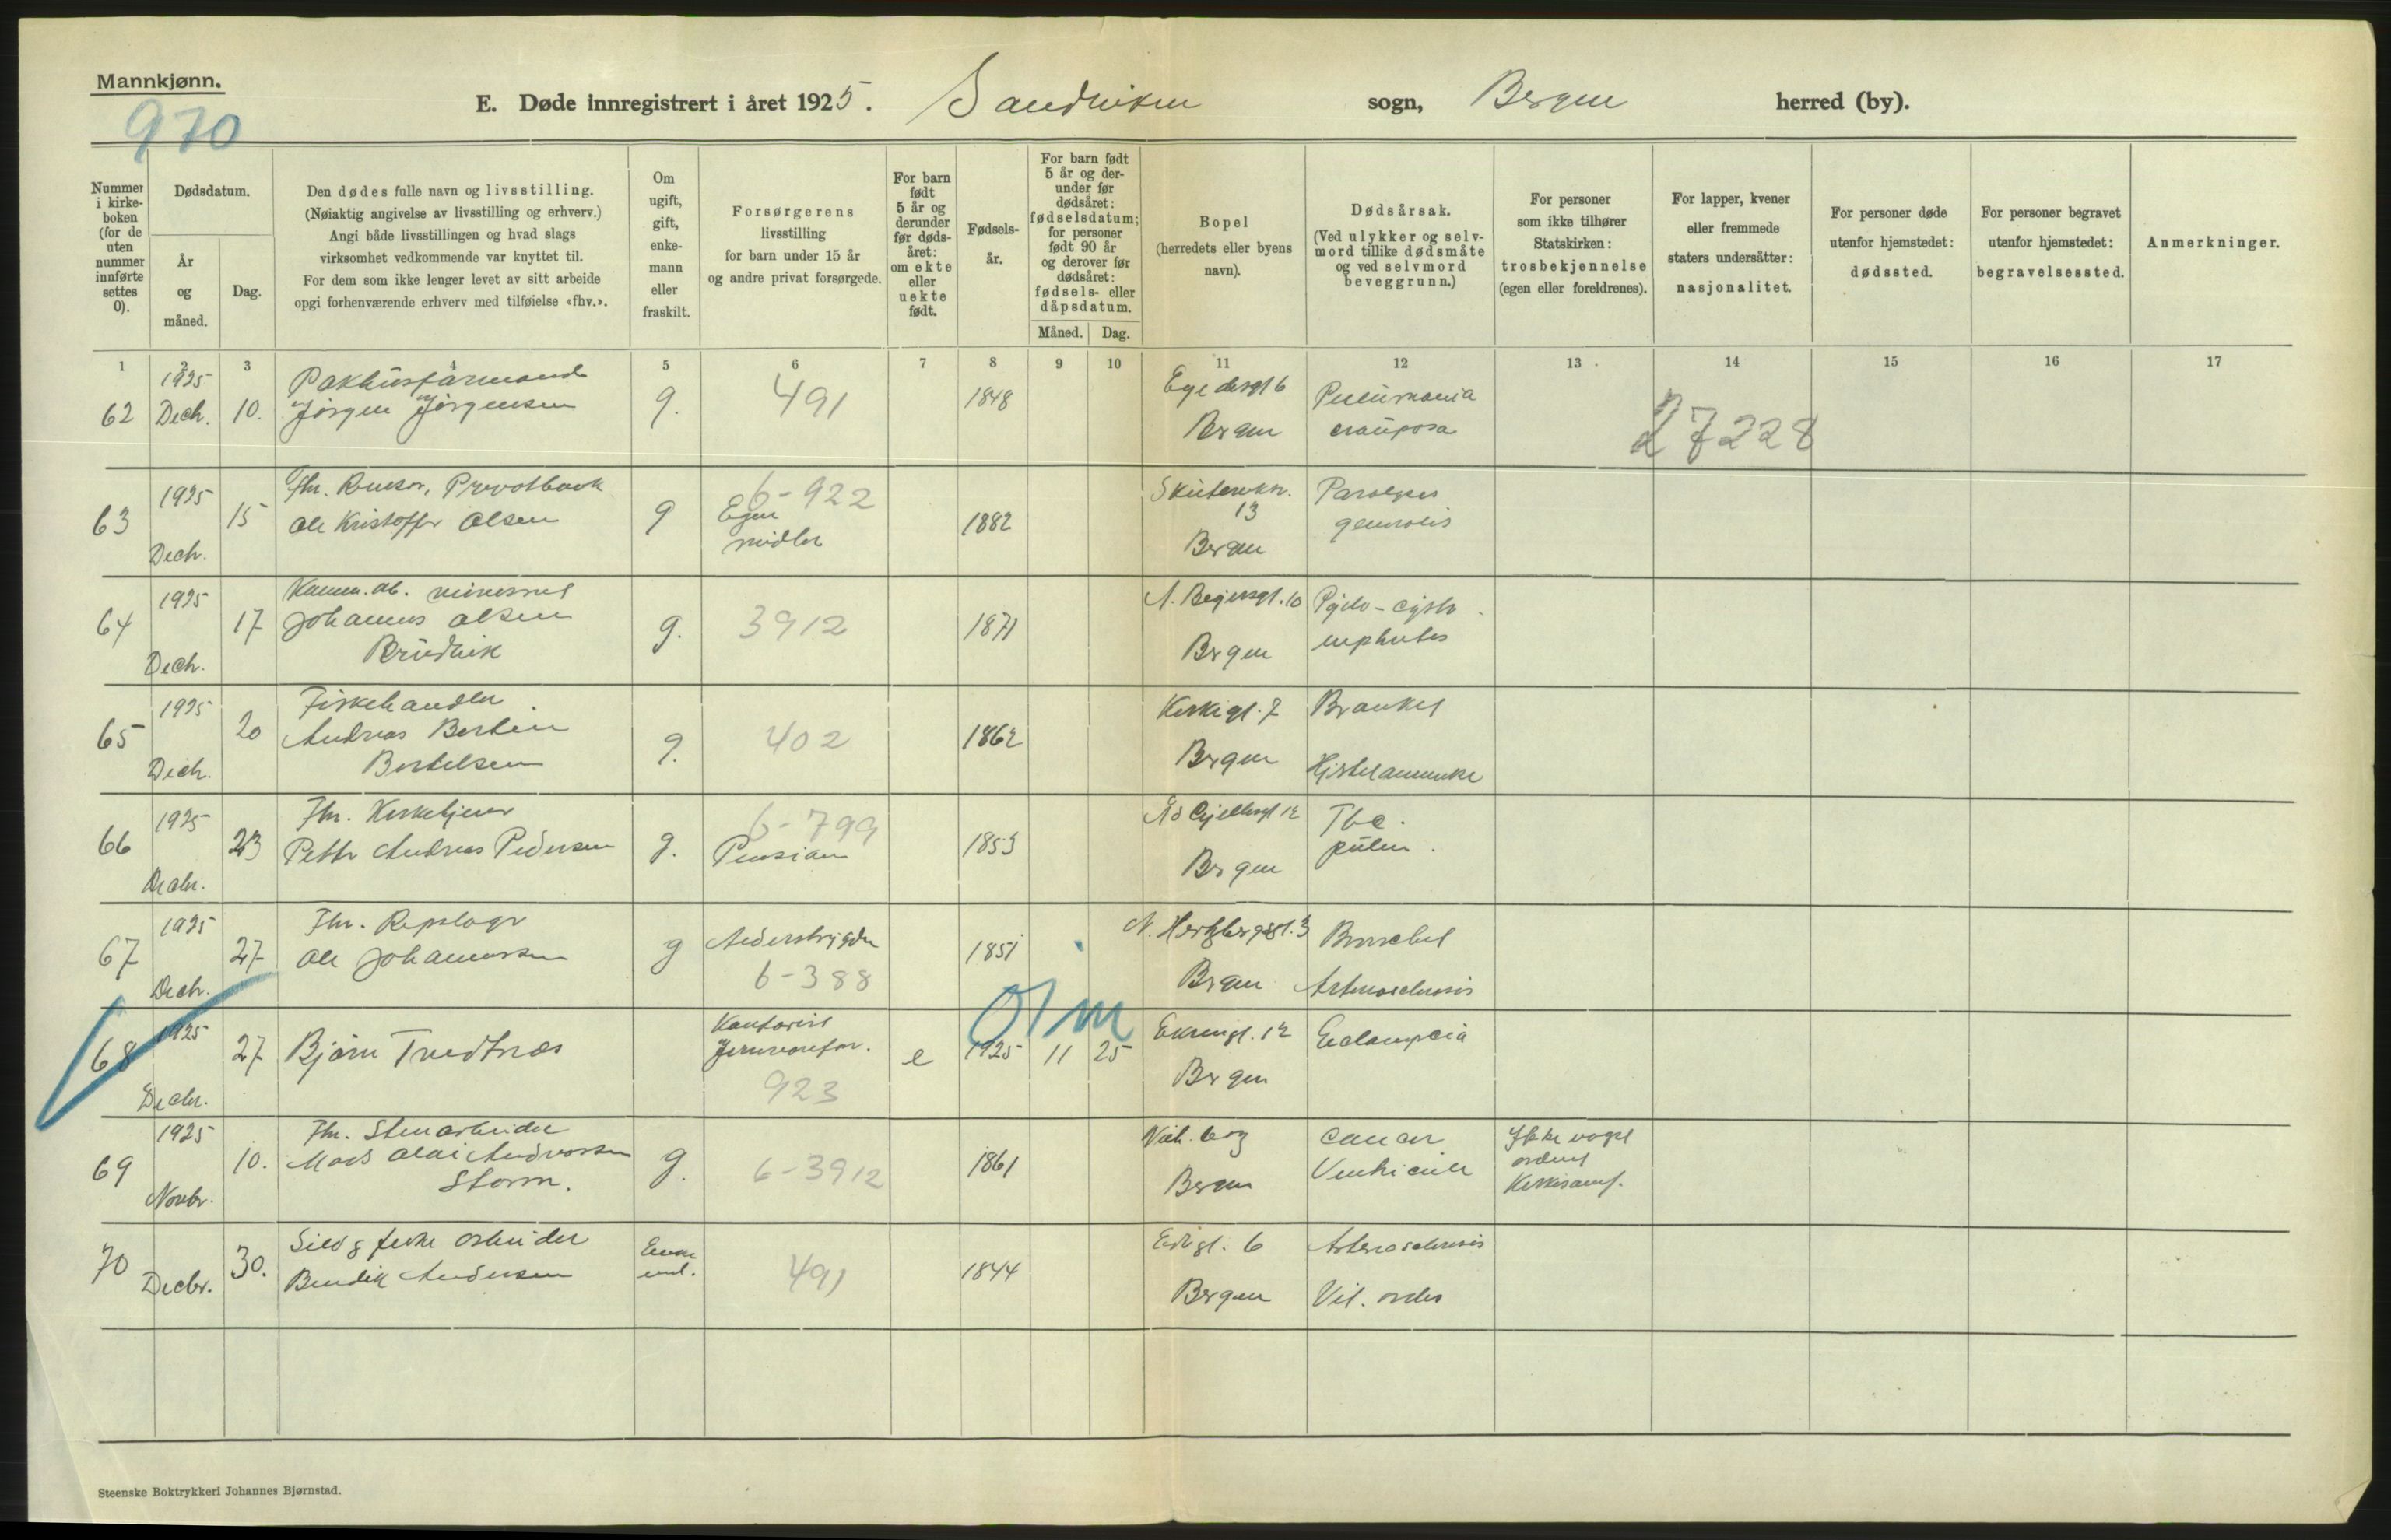 Mannkjønn.
970
E. Døde innregistrert i året 1925. Sandviken sogn, Bergen herred (by).
Nummer i kirkeboken (for de uten nummer innførte settes 0).
Dødsdatum.
År og måned.
Dag.
Den dødes fulle navn og livsstilling.
(Nøiaktig angivelse av livsstilling og erhverv.)
Angi både livsstillingen og hvad slags
virksomhet vedkommende var knyttet til.
For dem som ikke lenger levet av sitt arbeide
opgi forhenværende erhverv med tilføielse «fhv.».
Om ugift, gift, enkemann eller fraskilt.
Forsørgerens
livsstilling
for barn under 15 år
og andre privat forsørgede.
For barn født 5 år og derunder før dødsåret: om ekte eller uekte født.
Fødselsår.
For barn født 5 år og derunder før dødsåret: fødselsdatum; for personer født 90 år og derover før dødsåret: fødsels- eller dåpsdatum.
Måned. Dag.
Bopel
(herredets eller byens
navn).
Dødsårsak.
(Ved ulykker og selvmord tillike dødsmåte og ved selvmord beveggrunn.)
For personer
som ikke tilhører
Statskirken:
trosbekjennelse
(egen eller foreldrenes).
For lapper, kvener
eller fremmede
staters undersåtter:
nasjonalitet.
For personer døde
utenfor hjemstedet:
dødssted.
For personer begravet
utenfor hjemstedet:
begravelsessted.
Anmerkninger.
1 2 3 4 5 6 7 8 9 10 11 12 13 14 15 16 17
62 1925 Decb. 10. Pakhusformand
Jörgen Jörgensen g. 491 1848 Egedesgt 6
Bergen Pneumonia
crouposa 27228
63 1925 Decb. 15 Fhv. Revisor, Privatbank
Ole Kristoffer Olsen g 6-922
Egne
midler 1882 13
Bergen Paralyses
generalis
64 1925 Decb. 17 Johannes Olsen
g. 3912 1871 10
Bergen Pyelo-cysto
nephritis
65 1925 Decb. 20 Fiskehandler
Andreas Bertin
Bertelsen g. 402 1862 Kirkegt. 7
Bergen Bronkit
Hjertelammelse
66 1925 Decbr. 23 Fhv. Kirketjener
Petter Andreas Pedersen g. 6-799
Pension 1853 12
Bergen Tbc.
pulm.
67 1925 Decb. 27 Fhv. Repslager
Ole Johannessen g Alderstrygden
6-388 1851 N. Hertzbergsgt. 3
Bergen Bronchit
Arteriosclerosis
68 1925 Decbr. 27 Björn Tvedtnes Kontorist
Jernvarefor.
923 e 1925 11 25 01m Ekrengt. 12
Bergen Eclampcia
69 1925 Novbr. 10. Fhv. Stenarbeider
Mads Olai Andreassen
Storm. g. 6-3912 1861
Bergen Cancer
Ventriculi Ikke noget
ordnet
Kirkesamf.
70 Decbr. 30. Sild & fiske arbeider
Bendik Andersen Enkemd. 491 1844 6
Bergen Arteriosclerosis
Vit. cordis
Steenske Boktrykkeri Johannes Bjørnstad.